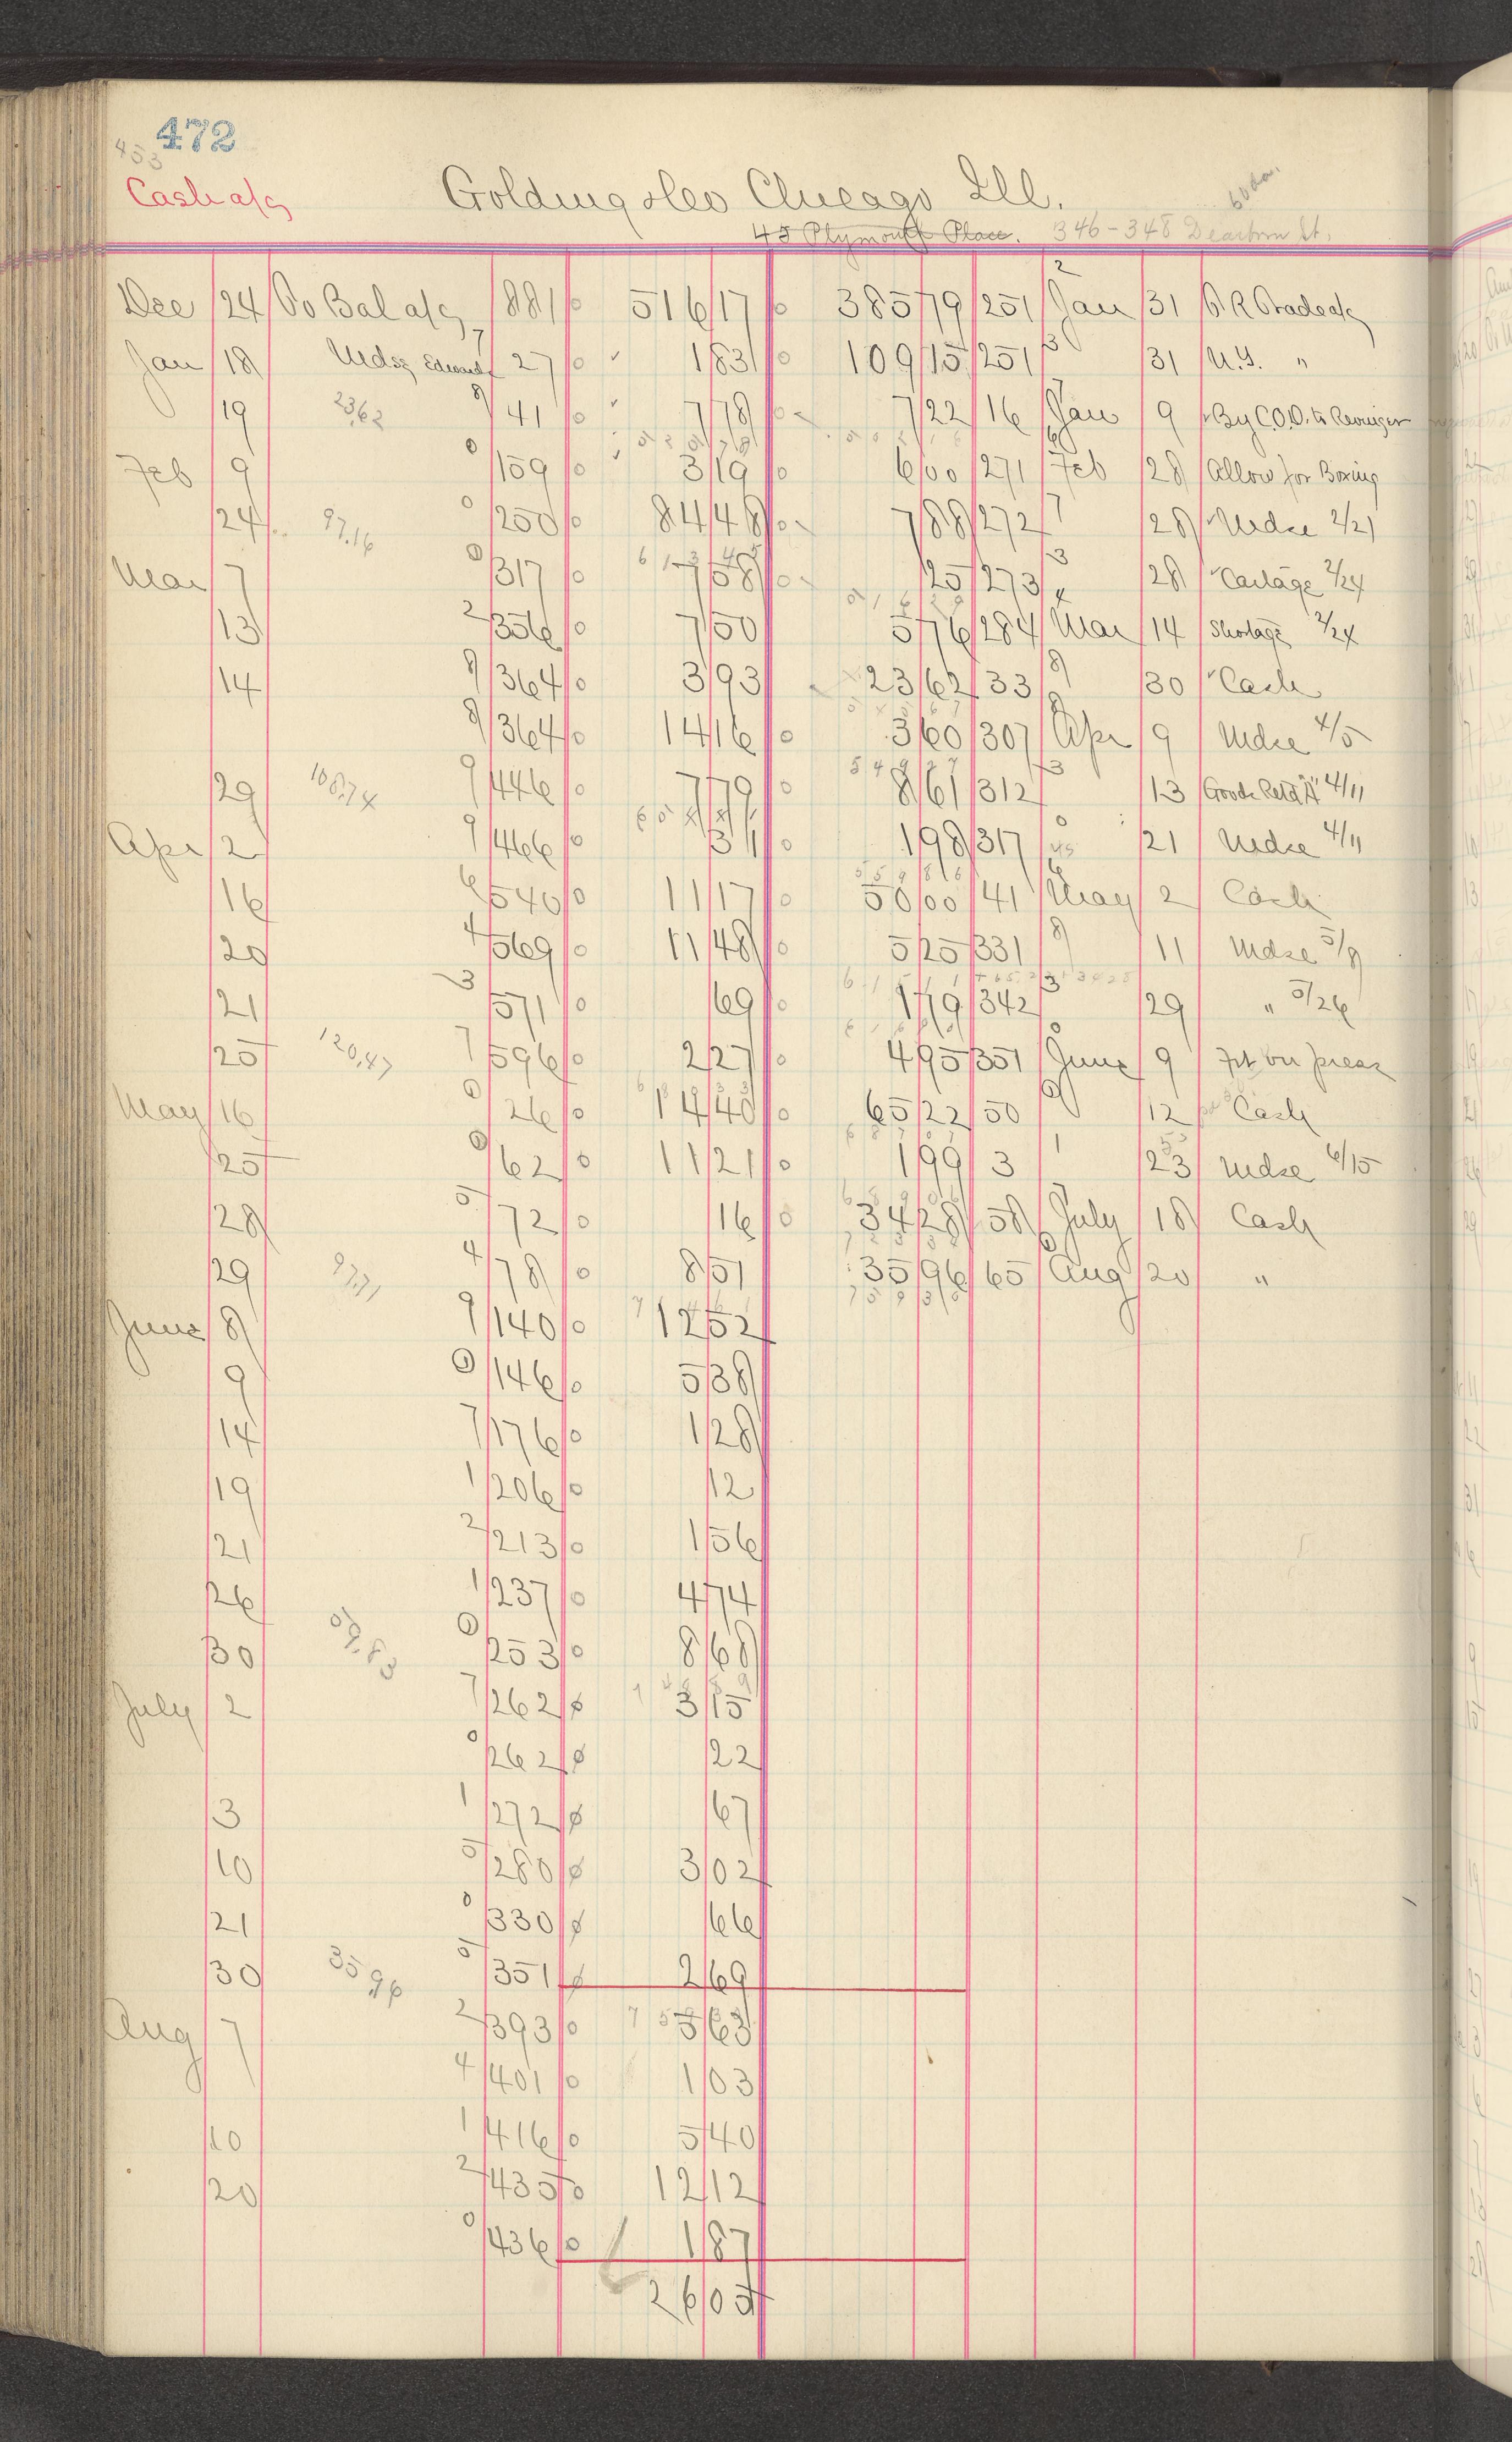 472
453
Cash a/c
Golding & Co Chicago Ill.
60 da.
45 Plymouth Place. 346-348 Dearborn St.
Dec 24 To Bal a/c 881 516 17 385 79 251 2 Jan 31 Trade a/c
Jan 18 Mdse 7 27 1 83 109 15 251 3 31 "
19 23.62 8 41 7 78 7 22 16 Jan 9 By C.O.D.
Feb 9 0 159 3 19 6 00 271 6 Feb 28 Allow for Boxing
24 97.16 0 250 84 48 7 88 272 7 28 Mdse 2/21
Mar 7 0 317 7 58 25 273 3 28 Cartage 2/24
13 2 356 7 50 5 76 284 4 Mar 14 Shortage 2/24
14 8 364 3 93 23 62 33 8 30 Cash
8 364 14 16 3 60 307 Apr 9 Mdse 4/5
29 108.74 9 446 7 79 8 61 312 3 13 Goods Retd 4/11
Apr 2 9 466 31 1 98 317 0 21 Mdse 4/11
16 6 540 11 17 50 00 41 6 May 2 Cash
20 4 569 11 48 5 25 331 8 11 Mdse 5/9
21 3 571 69 1 79 342 3 29 " 5/26
25 120.47 7 596 2 27 4 95 351 0 June 9 Frt on press
May 16 0 26 14 40 65 22 50 12 Cash
25 0 62 11 21 1 99 3 1 23 Mdse 6/15
28 5 72 16 34 28 58 July 18 Cash
29 97.71 4 78 8 51 35 96 65 6 Aug 20 "
June 8 9 140 12 52
9 0 146 5 38
14 7 176 1 28
19 1 206 12
21 2 213 1 56
26 1 237 4 74
30 0 253 8 68
July 2 7 262 3 15
0 262 22
3 1 272 67
10 5 280 3 02
21 0 330 66
30 35 96 5 351 2 69
Aug 7 2 393 5 63
4 401 1 03
10 1 416 5 40
20 2 435 12 12
0 436 1 87
26 05